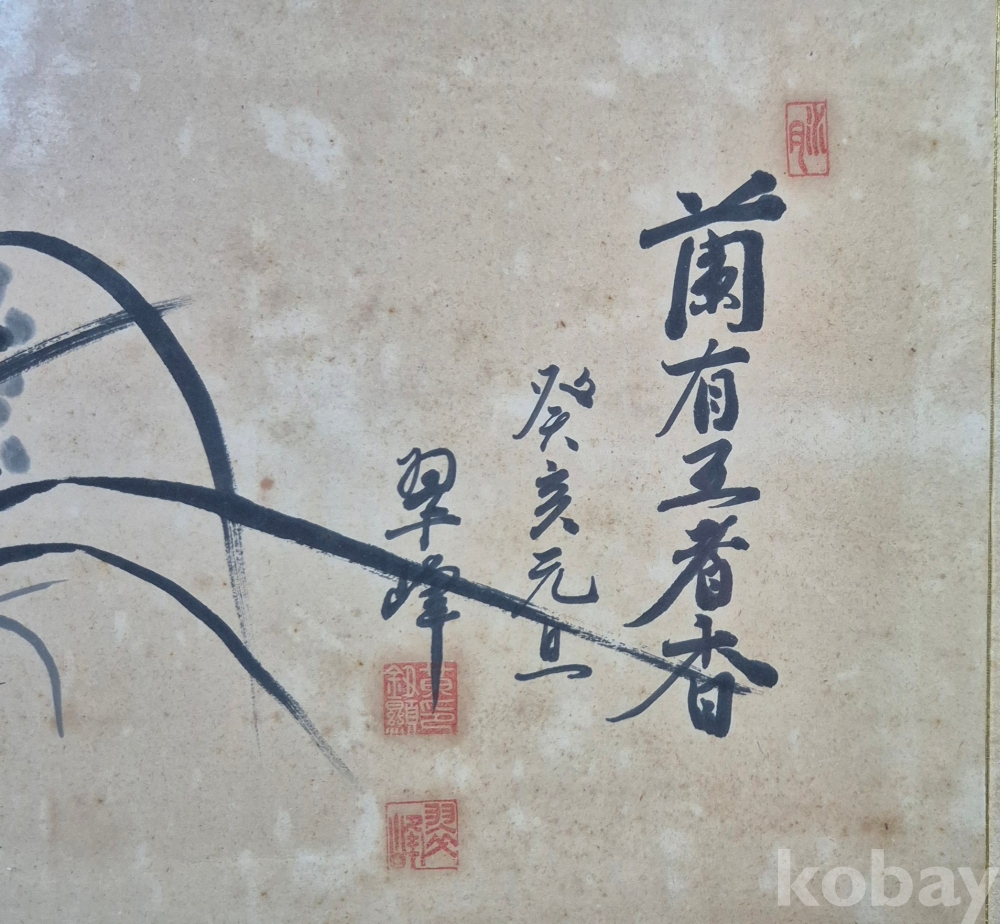 蘭有王者香
癸亥元旦
翠峰
kobay